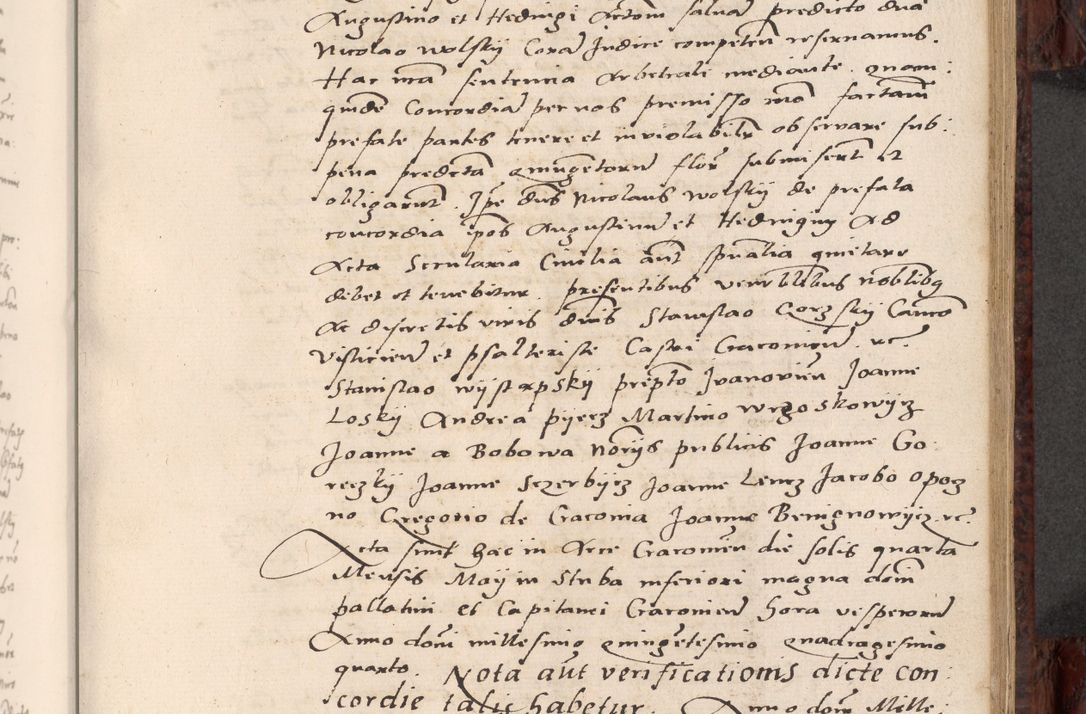 Augustino et Hedvigi Actom salva predicto dnō
Nicolao Wolskij Corā Judice competen reservamus.
Hac mā sententia Arbitrali mediante. quam:
quidē Concordiā per nos premisso mō factam
prefate partes tenere et inviolabilr observare sub
pena predicta quingētorū flor submiserūt et
obligarūt. Ipe dns Nicolaus Wolskij de prefata
concordia ipos Augustinū et Hedvigim Ad
Acta Secularia Civilia aut spualia quietare
debet et tenebitur. presentibus venerblibus noblibq
Ac discretis viris dnis Stanislao Gorzskij Canco
Visliciēn et psalteriste Castri Cracovien. rc.
Stanislao wijstxpskij prepto Ivanovien Joanne
Loskij Andrea pijerz Martino wrzoskowijcz
Joanne a Bobowa norijs publicis Joanne Go
reczkij Joanne Sczerbijcz Joanne Lencz Jacobo Opocz
no Gregorio de Cracovia Joanne Benignowijcz. rc.
Acta sunt hac in Arce Cracovien die solis quarta
Mensis Maij in Stuba inferiori magna dom
pallatini et Capitanei Cracovien hora vesperorū
Anno domi millesimo quingētesimo quadragesimo
quarto. Nota aūt verificationis dicte con
cordie talis habetur. Anno dom Mille: